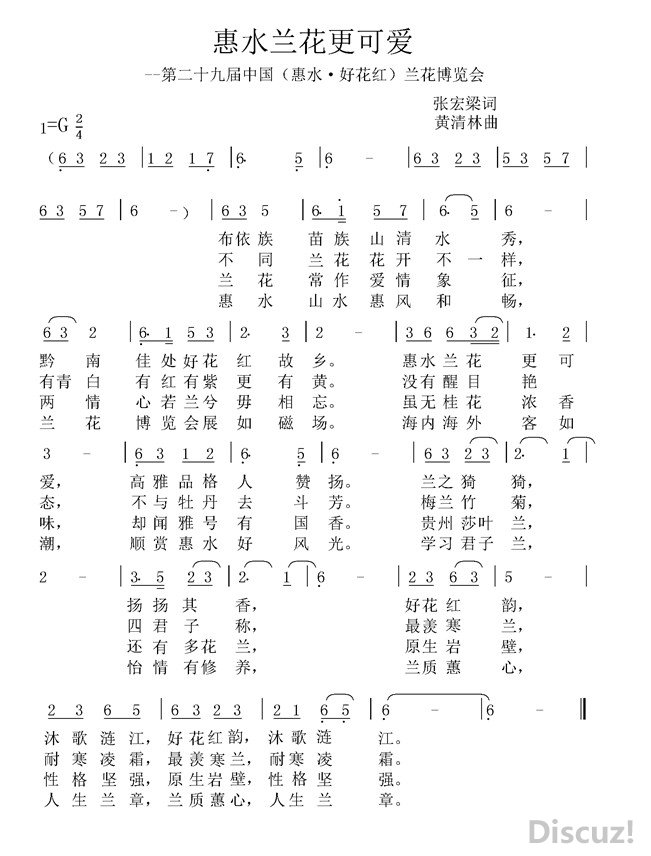 惠水兰花更可爱
--第二十九届中国（惠水·好花红）兰花博览会
张宏梁词
1=G 2/4
黄清林曲
（6 3 2 3 | 1 2 1 7 | 6· 5 | 6 - | 6 3 2 3 | 5 3 5 7 |
6 3 5 7 | 6 - ） | 6 3 5 | 6· 1 5 7 | 6· 5 | 5 - |
布依族 苗族山清 水 秀，
不 同 兰花花开 不 一 样，
兰 花 常作爱情 象 征，
惠 水 山水惠风 和 畅，
6 3 2 | 6· 1 5 3 | 2· 3 | 2 - | 3 6 6 3 2 | 1· 2 |
黔 南 佳处好花 红 故 乡。 惠水兰花 更 可
有青白 有红有紫 更 有 黄。 没有醒目 艳
两 情 心若兰兮 毋 相 忘。 虽无桂花 浓 香
兰 花 博览会展 如 磁 场。 海内海外 客 如
3 - | 6 3 1 2 | 6· 5 | 6 - | 6 3 2 3 | 2· 1 |
爱， 高雅品格 人 赞 扬。 兰之猗 猗，
态， 不与牡丹 去 斗 芳。 梅兰竹 菊，
味， 却闻雅号 有 国 香。 贵州莎叶 兰，
潮， 顺赏惠水 好 风 光。 学习君子 兰，
2 - | 3· 5 2 3 | 2· 1 | 6 - | 2 3 6 3 | 5 - |
扬扬其 香， 好花红 韵，
四君子 称， 最羡寒 兰，
还有多花 兰， 原生岩 壁，
怡情有修 养， 兰质蕙 心，
2 3 6 5 | 6 3 2 3 | 2 1 6 5 | 6 - | 6 - ‖
沐歌涟江，好花红韵，沐歌涟 江。
耐寒凌霜，最羡寒兰，耐寒凌 霜。
性格坚强，原生岩壁，性格坚 强。
人生兰章，兰质蕙心，人生兰 章。
Discuz!